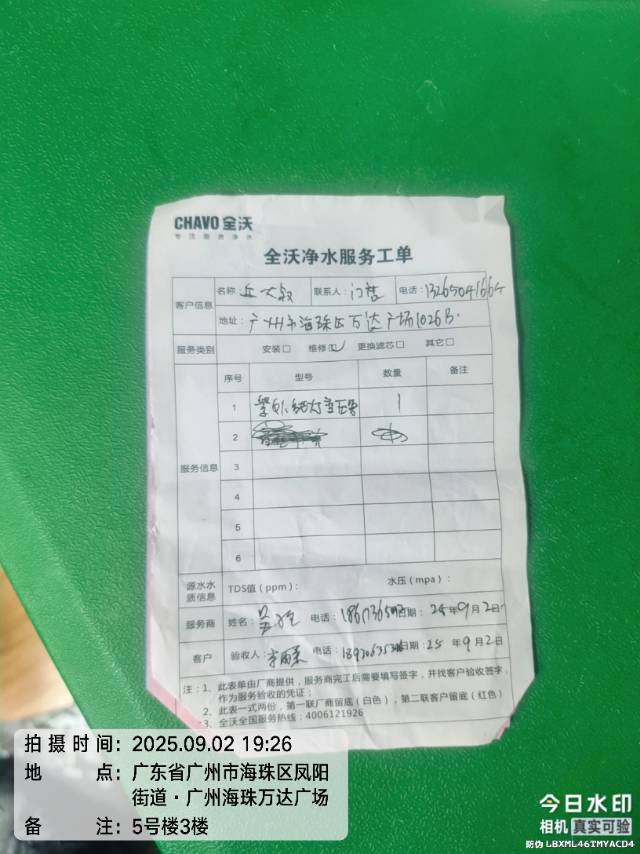 CHAVO 全沃
专注厨房净水
全沃净水服务工单
客户信息 名称 丘大叔 联系人: 门店 电话: 13265041664
地址: 广州市海珠区万达广场1026B.
服务类别 安装□ 维修☑ 更换滤芯□ 其它□
服务信息 序号 型号 数量 备注
1 紫外线灯变压器 1
2
3
4
5
6
源水水质信息 TDS值(ppm): 水压(mpa):
服务商 姓名: 电话: 日期: 25年9月2日
客户 验收人: 电话: 日期: 25年9月2日
注: 1、此表单由厂商提供,服务商完工后需要填写签字,并找客户验收签字,
作为服务验收的凭证;
2、此表一式两份,第一联厂商留底(白色),第二联客户留底(红色)
3、全沃全国服务热线: 4006121926
拍摄时间: 2025.09.02 19:26
地点: 广东省广州市海珠区凤阳
街道·广州海珠万达广场
备注: 5号楼3楼
今日水印
相机 真实可验
防伪 LBXML46TMYACD4